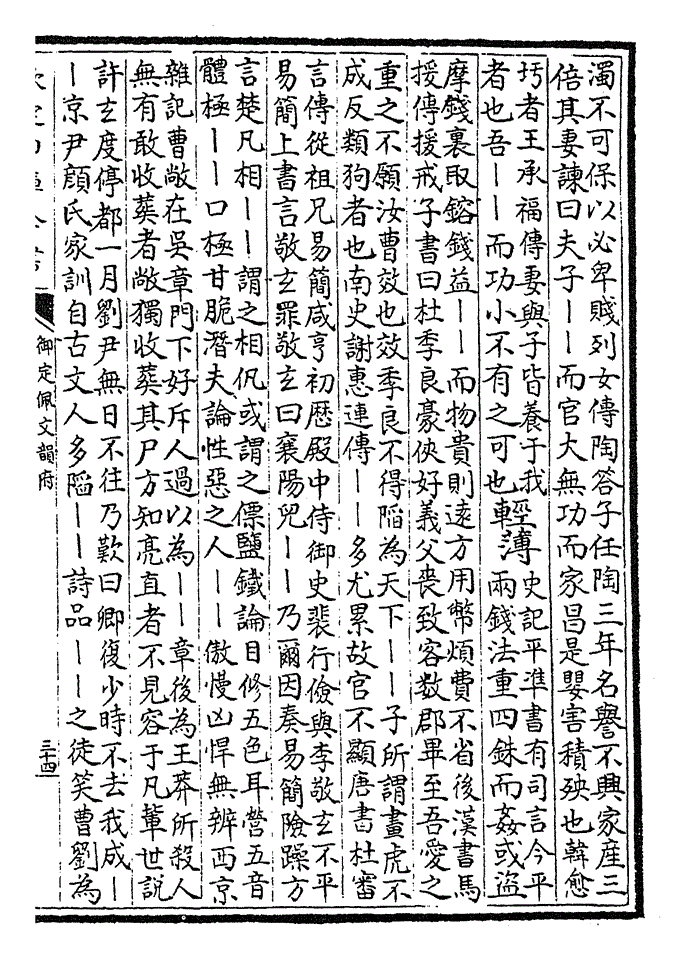 濁不可保以必卑賤列女傳陶答子任陶三年名譽不興家産三
倍其妻諫曰夫子丨丨而官大無功而家昌是嬰害積殃也韓愈
圬者王承福傳妻與子皆養于我
者也吾丨丨而功小不有之可也
輕薄
史記平準書有司言今半
兩錢法重四銖而姦或盜
摩錢裏取鎔錢益丨丨而物貴則逺方用幣煩費不省後漢書馬
援傳援戒子書曰杜季良豪俠好義父喪致客數郡畢至吾愛之
重之不願汝曹效也效季良不得陷為天下丨丨子所謂畫虎不
成反類狗者也南史謝惠連傳丨丨多尤累故官不顯唐書杜審
言傳從祖兄易簡咸亨初歴殿中侍御史裴行儉與李敬𤣥不平
易簡上書言敬𤣥罪敬𤣥曰襄陽兒丨丨乃爾因奏易簡險躁方
言楚凡相丨丨謂之相仉或謂之僄鹽鐵論目修五色耳營五音
體極丨丨口極甘脆潛夫論性惡之人丨丨傲慢凶悍無辨西京
雜記曹敞在吳章門下好斥人過以為丨丨章後為王莽所殺人
無有敢收葬者敞獨收葬其尸方知亮直者不見容于凡輩世說
許𤣥度停都一月劉尹無日不往乃歎曰卿復少時不去我成丨
丨京尹顔氏家訓自古文人多陷丨丨詩品丨丨之徒笑曹劉為
欽定四庫全書
御定佩文韻府
三十四